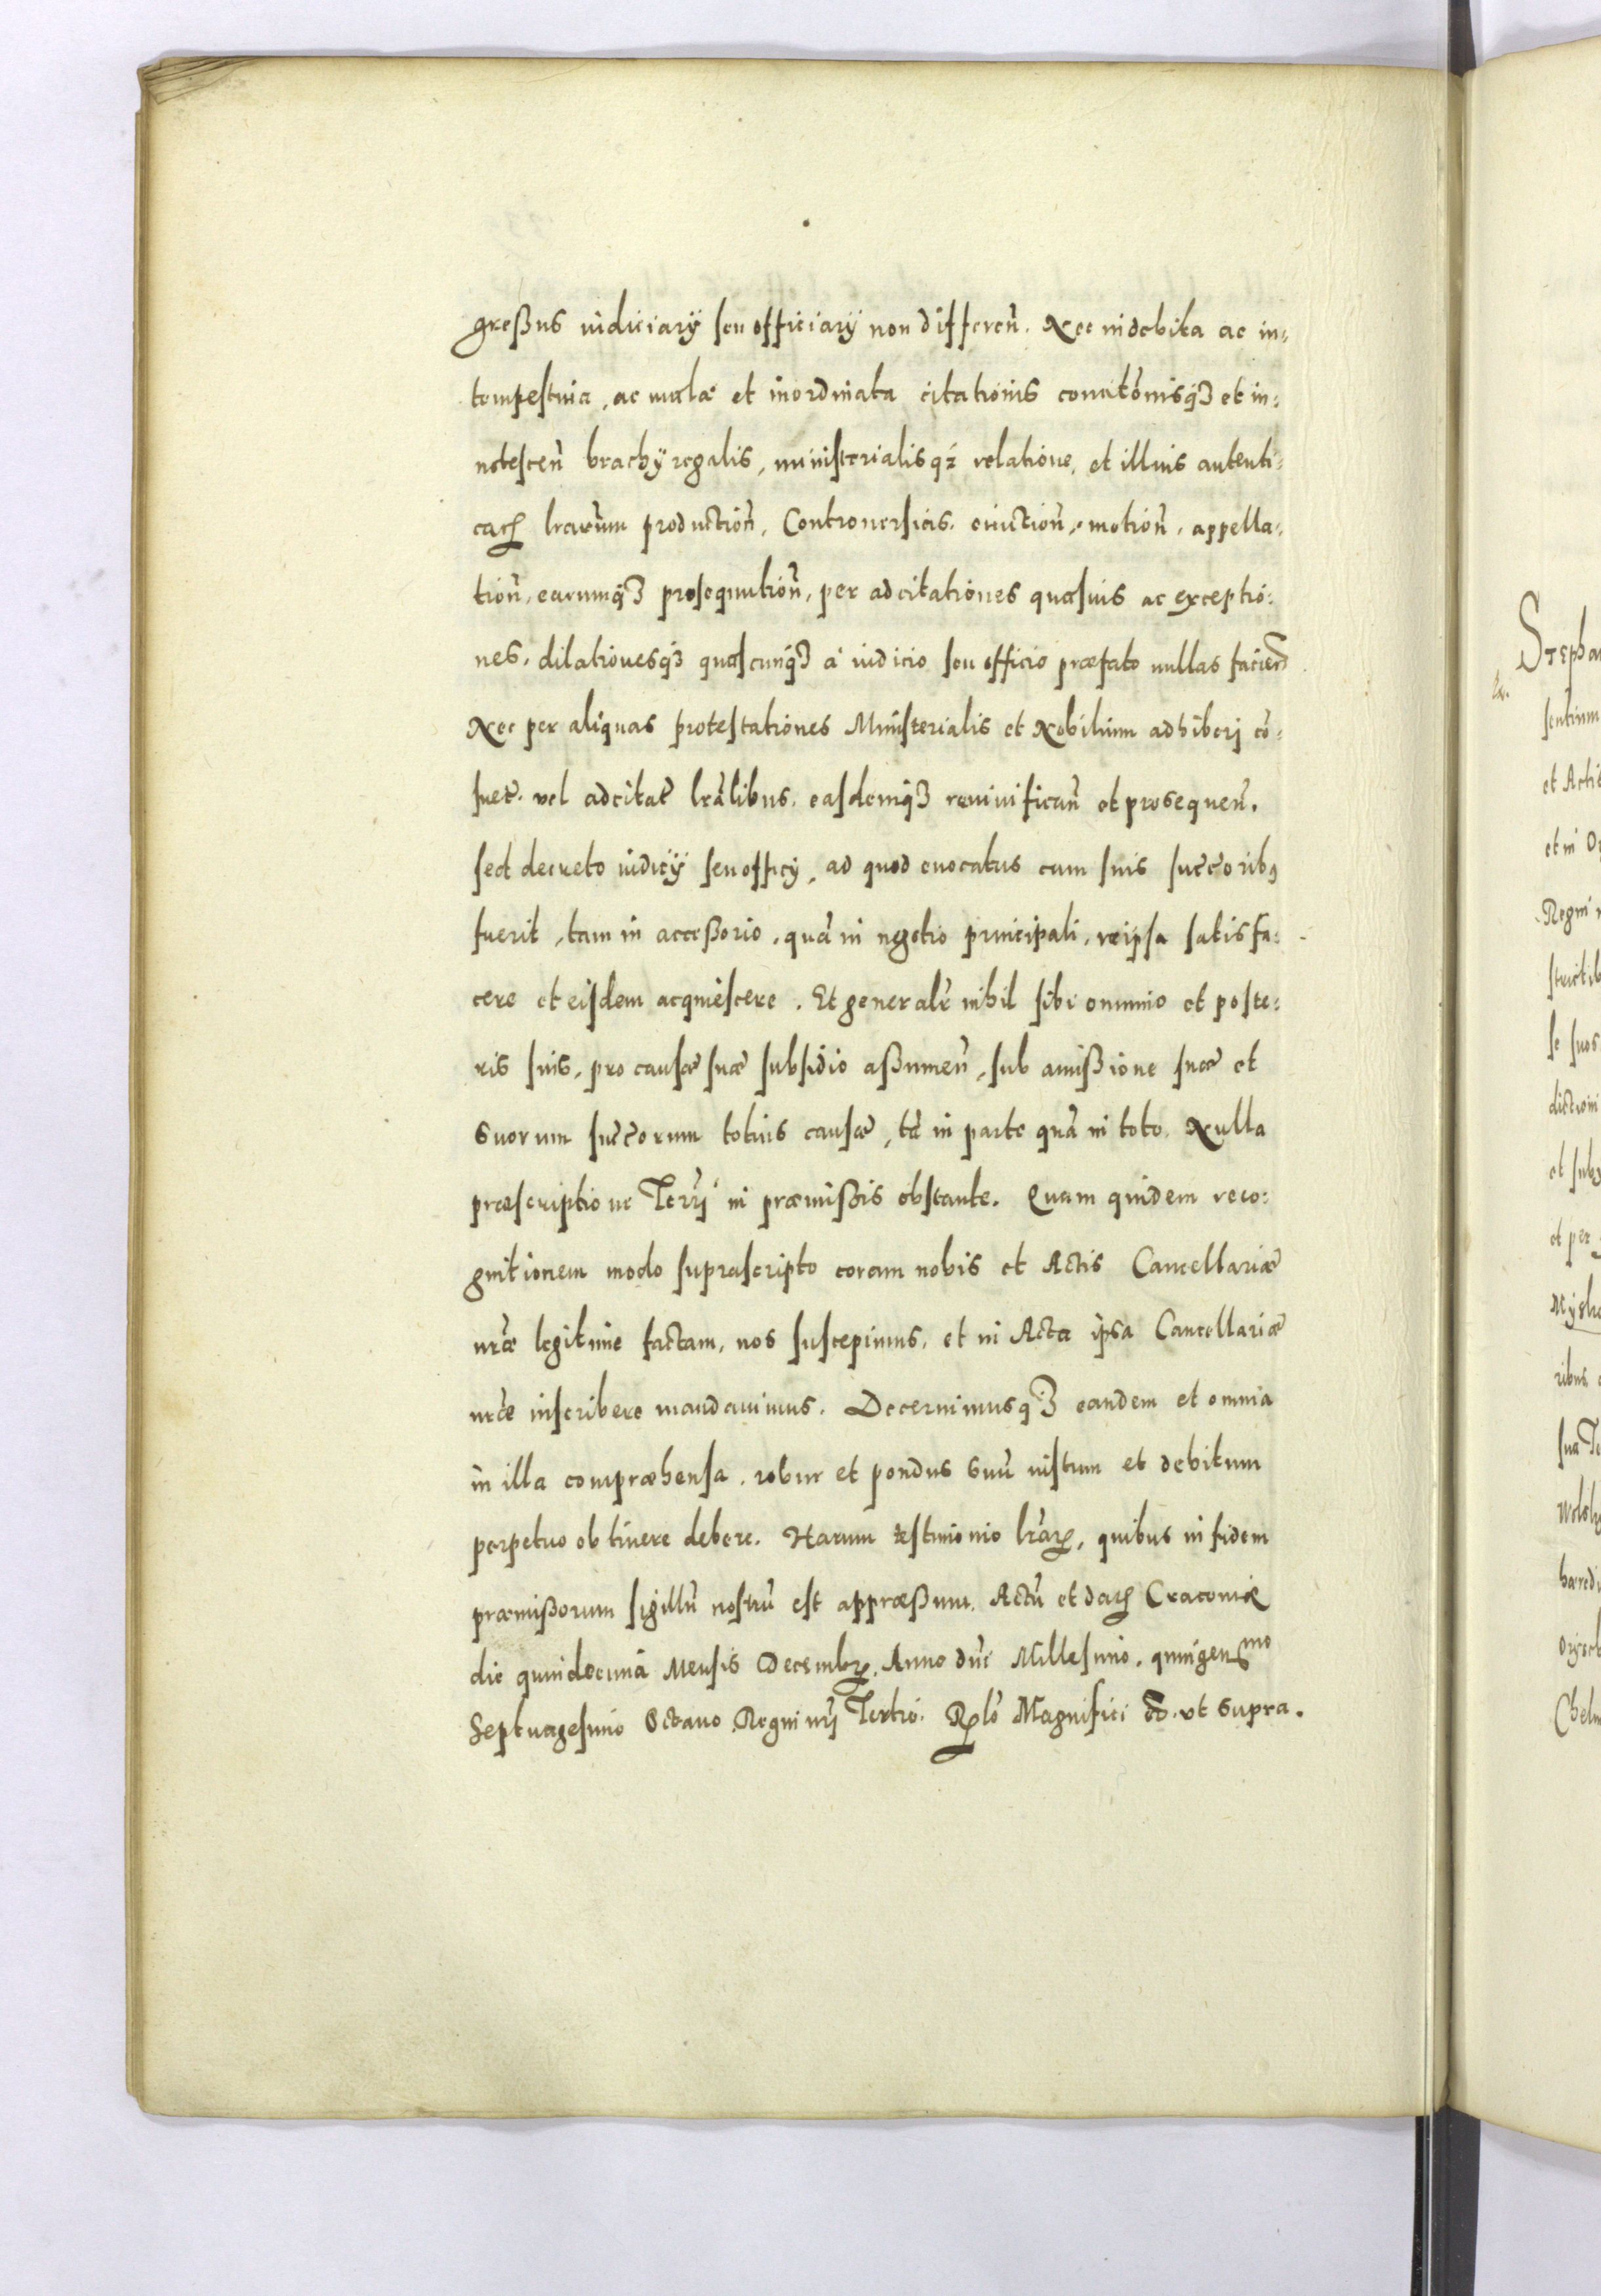 greßus iudiciarÿ seu officiarÿ non differeñ. Nec indebita ac in-
tempestiua, ac mala et inordinata citationis conuitõnisq3 et in-
notesceñ brachÿ regalis, ministerialisq3 relatione, et illius autenti-
cas lrarum production̄, Controuersicis. euiction̄, motion̄, appella-
tion̄, earumq3 prosequution̄, per adcitationes quasuis ac exceptio-
nes, dilationesq3 quascunq3 à iudicio seu officio præfato nullas facieñ
Nec per aliquas protestationes Ministerialis et Nobilium adhiberj cõ-
suet̃. vel adcitat̃ lrãlibus, easdemq3 reuiuificañ et prosequeñ.
sed decreto iudicÿ seu officÿ, ad quod euocatus cum suis succ̃oribꝰ
fuerit, tam in acceßorio, quã in negotio principali, reipsa satisfa-
cere et eisdem acquiescere. Et generalr̃ nihil sibi omnino et poste-
ris suis, pro causæ suæ subsidio aßumeñ, sub amißione suæ et
suorum succ̃orum totius causæ, tã in parte quã in toto. Nulla
præscriptione Terrj in præmißis obstante. Quam quidem reco-
gnitionem modo suprascripto coram nobis et Actis Cancellariæ
nr̃æ legitime factam, nos suscepimus, et in Acta ipsa Cancellariæ
nr̃æ inscribere mandauimus. Decernimusq3 eandem et omnia
in illa compræhensa, robur et pondus suũ iustum et debitum
perpetuo obtinere debere. Harum testimonio lrãꝝ, quibus in fidem
præmißorum sigillũ nostrũ est appræßum. Actũ et daꝭ Cracouiæ
die quindecima Mensis Decembꝝ. Anno dñi Millesimo, quingenmo
Septuagesimo Octauo. Regni nrj Tertio. Rlõ Magnifici &c. vt supra.
Stepha
sentium
et Actis
et in Or
Regni
se suos
dictioni
et per
ribus
sua Te
haredi
Chelm